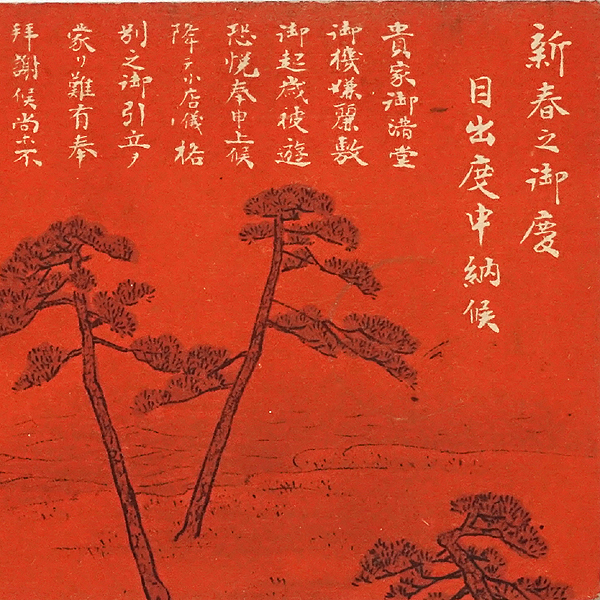 新春之御慶
目出度申納候
貴家御満堂
御機嫌麗敷
御起歳被遊
恐悦奉申上候
降テ小店儀格
別之御引立ヲ
蒙リ難有奉
拝謝候尚不